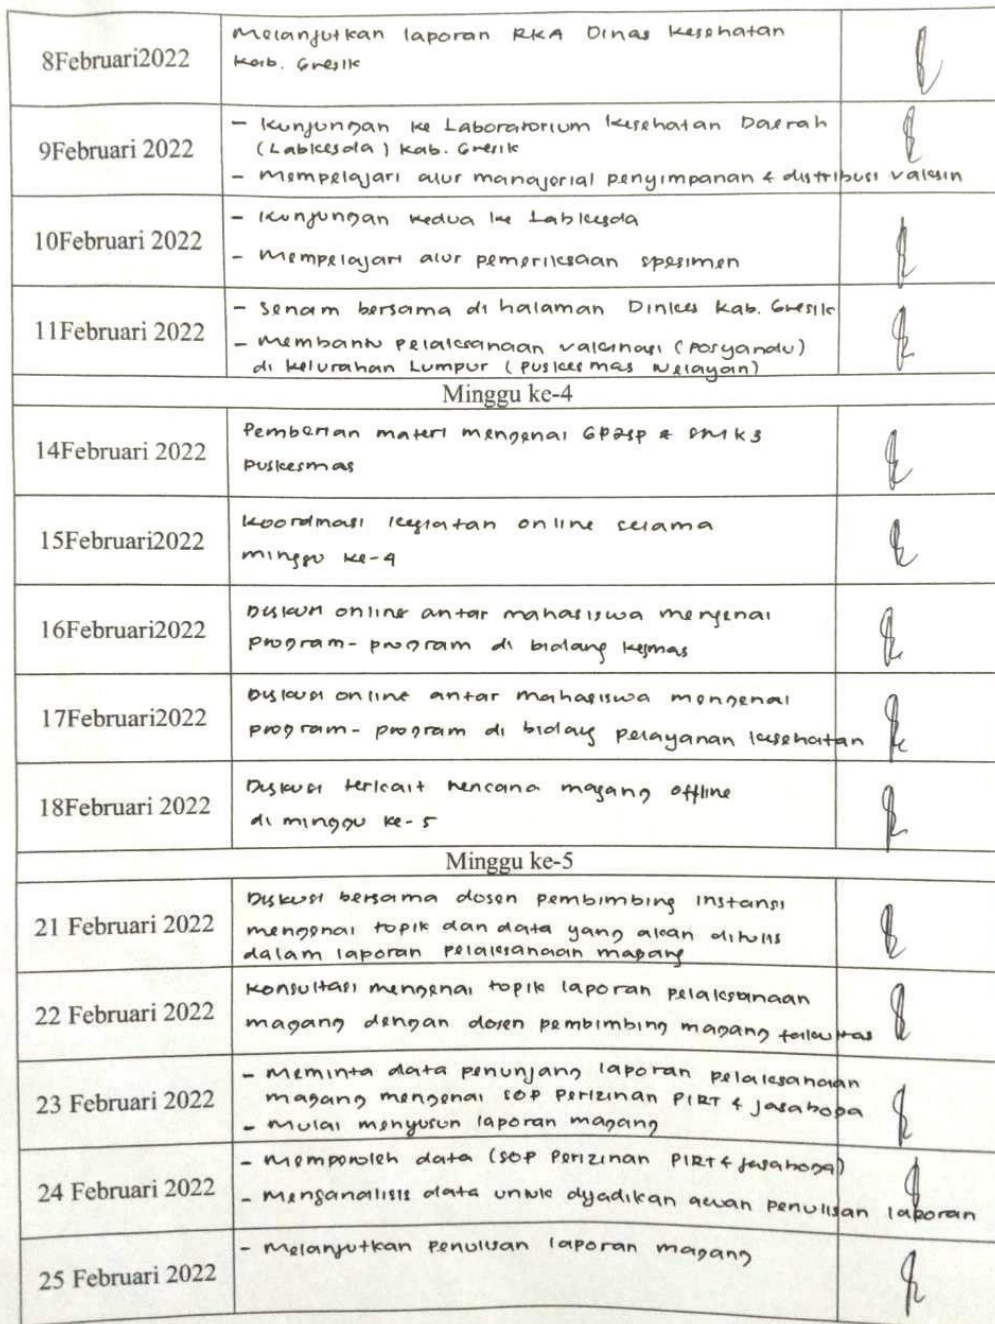 8Februari2022
Melanjutkan laporan RKA Dinas Kesehatan
Kab. Gresik
9Februari 2022
- Kunjungan ke Laboratorium Kesehatan Daerah
(Labkesda) Kab. Gresik
- Mempelajari alur manajerial penyimpanan & distribusi vaksin
10Februari 2022
- Kunjungan kedua ke Labkesda
- Mempelajari alur pemeriksaan spesimen
11Februari 2022
- Senam bersama di halaman Dinkes Kab. Gresik
- Membantu pelaksanaan vaksinasi (Posyandu)
di kelurahan Lumpur (Puskesmas Nelayan)
Minggu ke-4
14Februari 2022
Pemberian materi mengenai GP2SP & SMK3
Puskesmas
15Februari2022
Koordinasi kegiatan online selama
minggu ke-4
16Februari2022
Diskusi online antar mahasiswa mengenai
program-program di bidang kesmas
17Februari2022
Diskusi online antar mahasiswa mengenai
program-program di bidang pelayanan kesehatan
18Februari 2022
Diskusi terkait rencana magang offline
di minggu ke-5
Minggu ke-5
21 Februari 2022
Diskusi bersama dosen pembimbing instansi
mengenai topik dan data yang akan ditulis
dalam laporan pelaksanaan magang
22 Februari 2022
Konsultasi mengenai topik laporan pelaksanaan
magang dengan dosen pembimbing magang fakultas
23 Februari 2022
- Meminta data penunjang laporan pelaksanaan
magang mengenai SOP Perizinan PIRT & Jasaboga
- Mulai menyusun laporan magang
24 Februari 2022
- Memperoleh data (SOP Perizinan PIRT & Jasaboga)
- Menganalisis data untuk dijadikan acuan penulisan laporan
25 Februari 2022
- Melanjutkan penulisan laporan magang